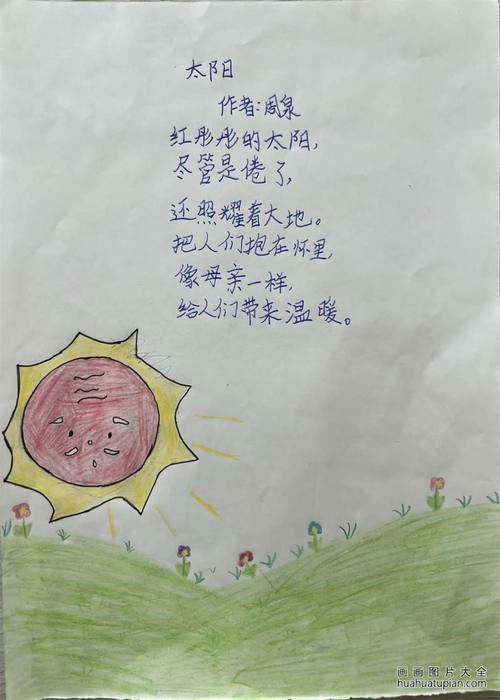 太阳
作者:周泉
红彤彤的太阳,
尽管是倦了,
还照耀着大地。
把人们抱在怀里,
像母亲一样,
给人们带来温暖。
画画图片大全
huahuatupian.com